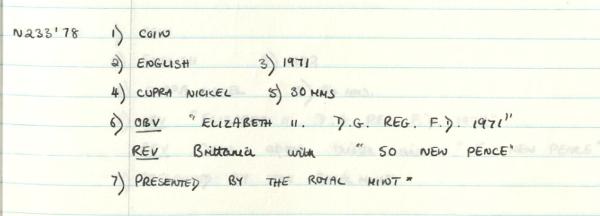 N233'78 1) COIN
2) ENGLISH 3) 1971
4) CUPRA NICKEL 5) 30 MMS
6) OBV "ELIZABETH II. D.G. REG. F.D. 1971"
REV Brittania with "50 NEW PENCE"
7) PRESENTED BY THE ROYAL MINT"